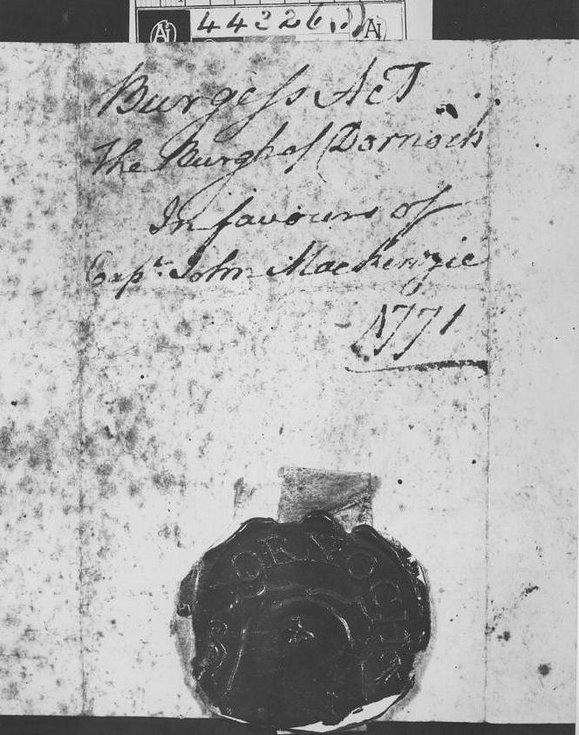 44326
Burgess Act
The Burgh of Dornoch
In favours of
Capt. John Mackenzie
1771